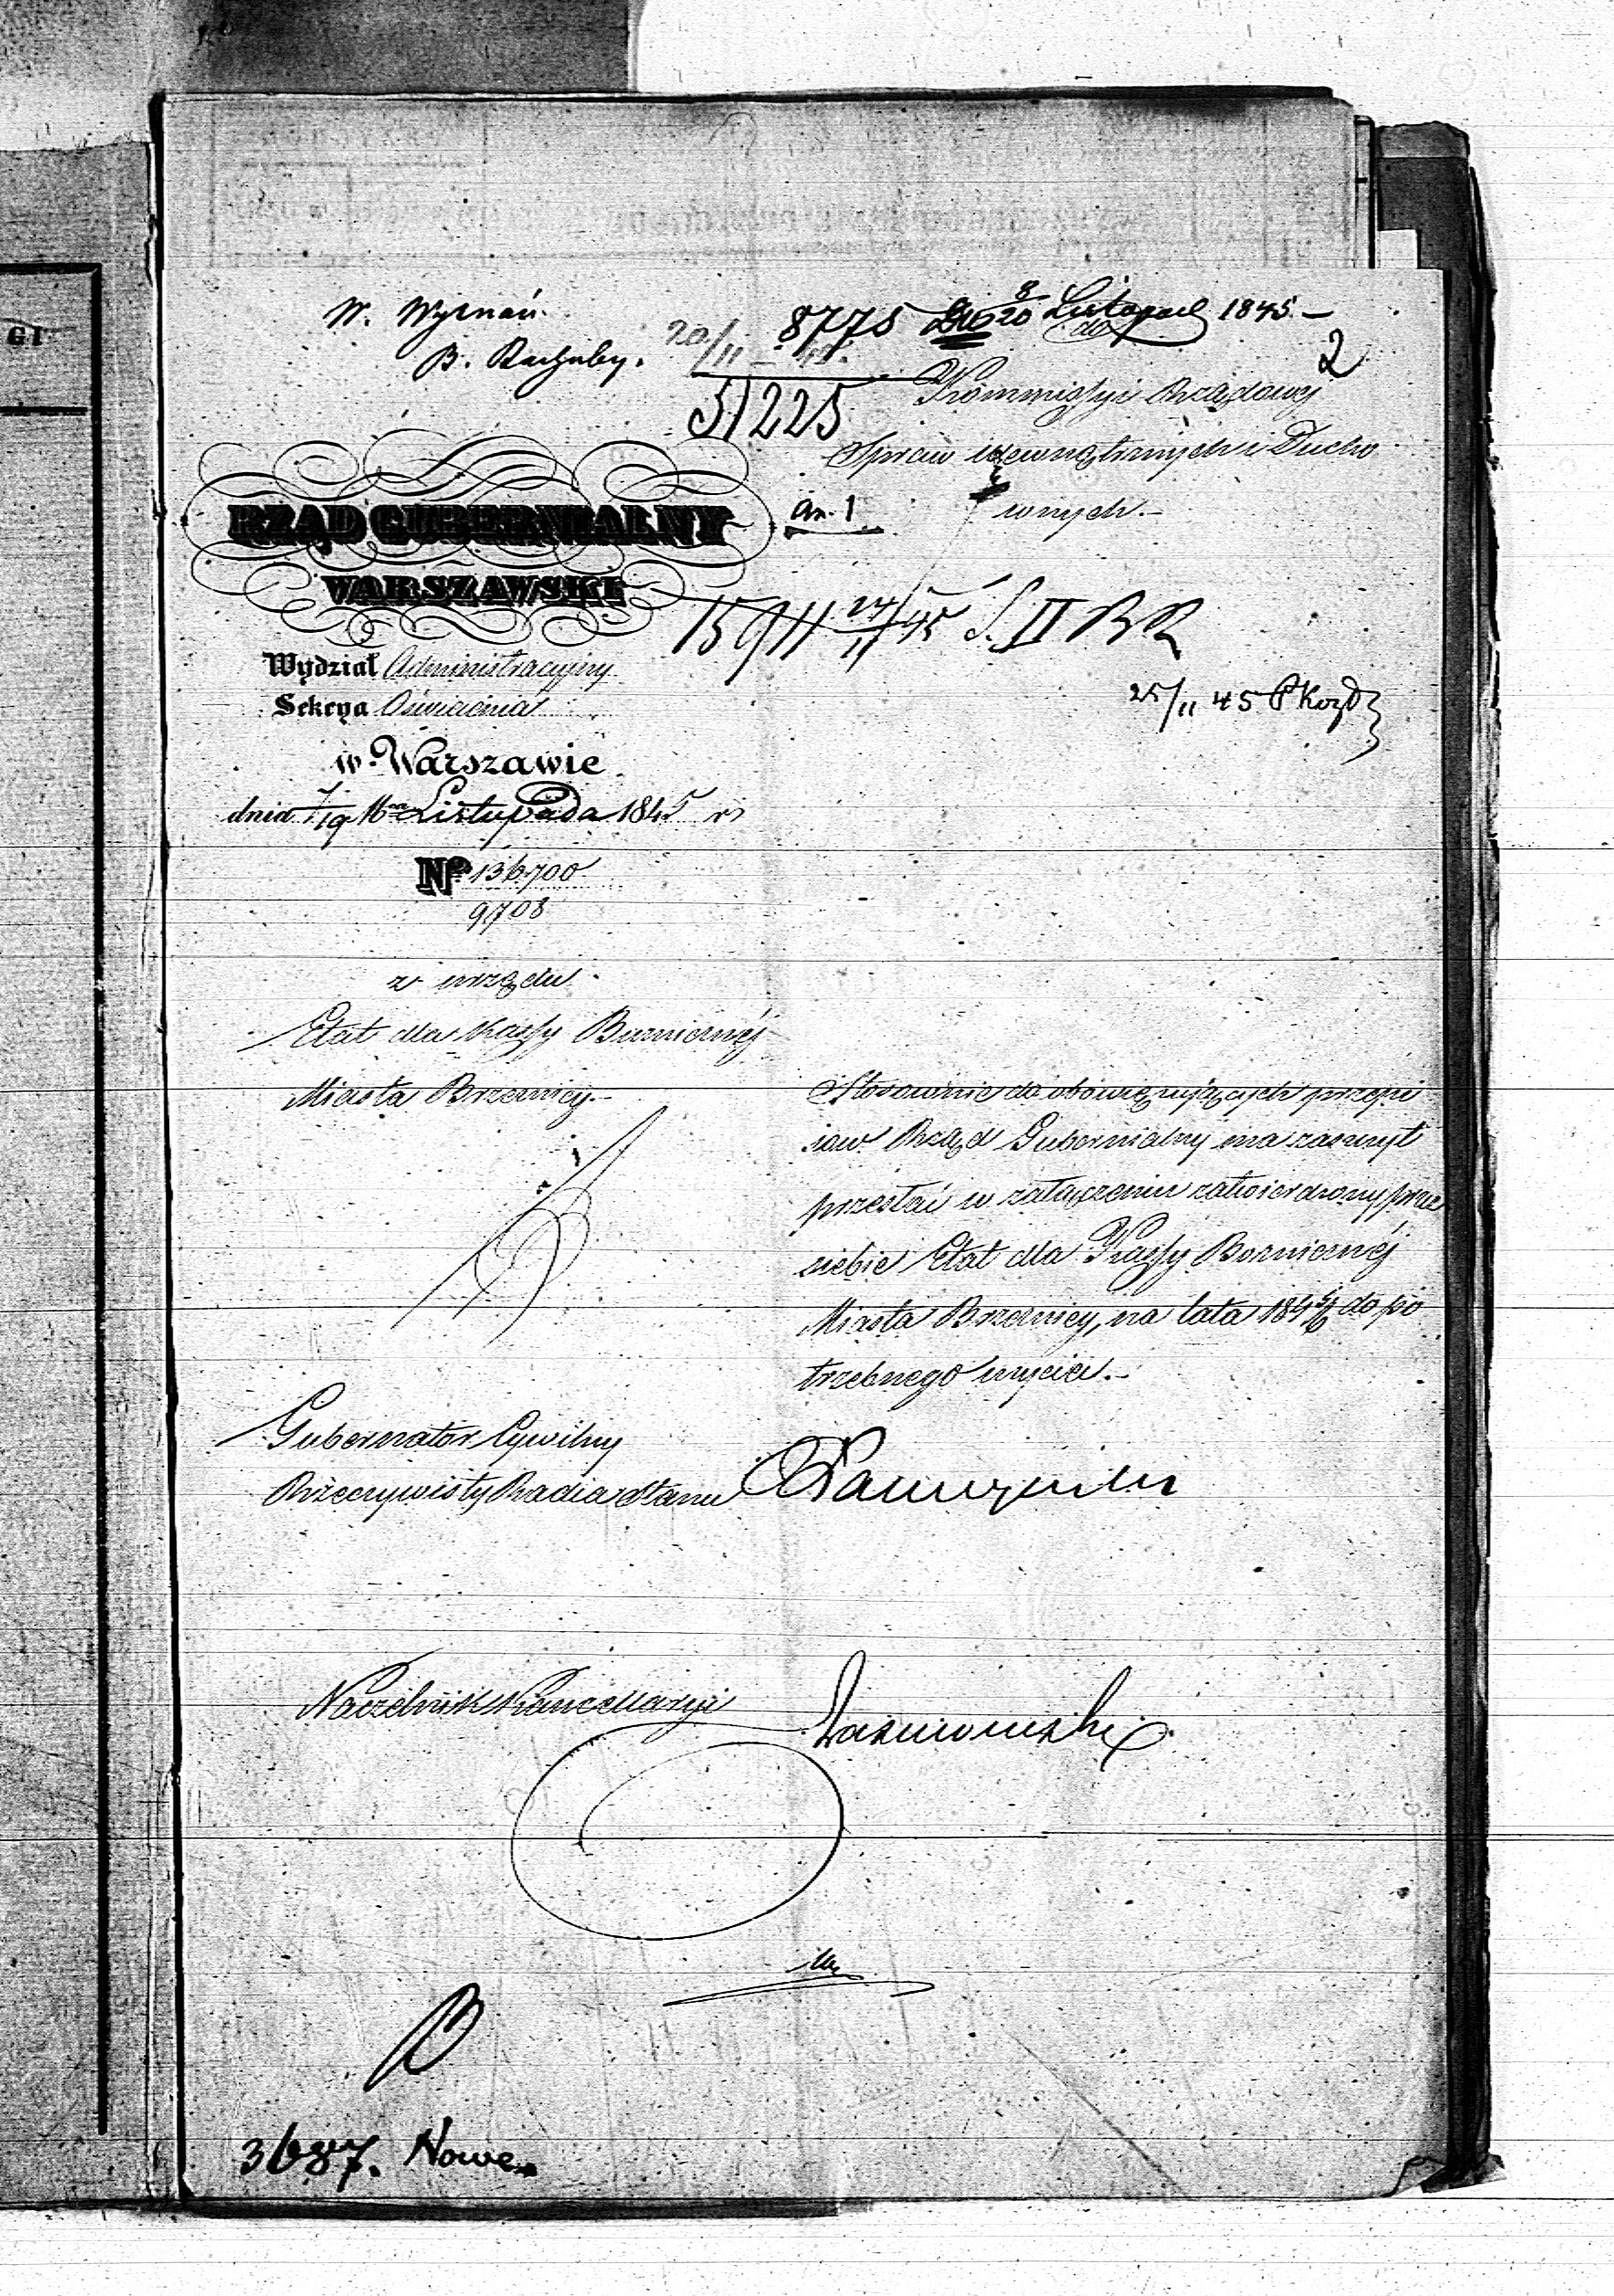 GI
W. Wyznań.
B. Rachuby.
20/11 - 45.
8775 Dnia 8/20 Listopad 1845.-
do
2
51225
Kommissyi Rządowej
Spraw Wewnętrznych i Ducho
wnych.-
an. 1
RZĄD GUBERNIALNY
WARSZAWSKI
15911 24/11 45 S. II BR
Wydział Administracyjny
Sekcya Oświecenia
25/11 45
w Warszawie
dnia 7/19 Listopada 1845 r
No 136700
9708
z urzędu.
Etat dla Kassy Bożniczej
Miasta Brzeznicy.-
Stosownie do obowięzujących przepi
sow Rząd Gubernialny ma zaszczyt
przesłać w załączeniu zatwierdzony przez
siebie Etat dla Kassy Bożniczej
Miasta Brzeznicy, na lata 184 5/6 do po
trzebnego użycia.-
Gubernator Cywilny
Rzeczywisty Radca Stanu
Naczelnik Kancellaryi
Nowe.